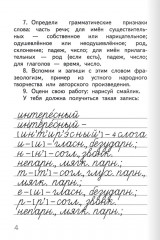 7. Определи грамматические признаки
слова: часть речи; для имён существитель-
ных — собственное или нарицательное;
одушевлённое или неодушевлённое; род,
склонение, падеж; число; для имён прилага-
тельных — род (если есть), падеж, число;
для глаголов — время, число.
8. Вспомни и запиши с этим словом фра-
зеологизм, пример из устного народного
творчества или авторского произведения.
9. Оцени свою работу: нарисуй смайлик.
У тебя должна получиться такая запись:
интересный
интересный —
[ин'т'ир'эсный'] - 4 слога
и - [и] - гласн., безударн.;
н - [н'] - согл., звонк.
непарн., мягк. парн.;
т - [т'] - согл., глух. парн.,
мягк. парн.;
е - [и] - гласн., безударн.;
р - [р'] - согл., звонк.
непарн., мягк. парн.;
4